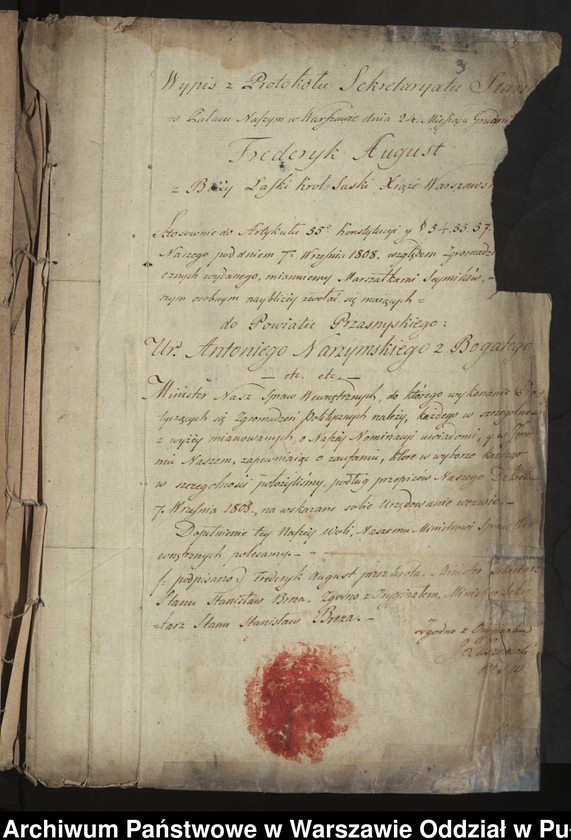 3
Wypis z Protokołu Sekretaryatu Stan
w Pałacu Naszym w Warszawie dnia 24. Miesiąca Grudni
Fryderyk August
z Bożey Łaski Krol Saski Xiąże Warszaws
Stosownie do Artykułu 55º Konstytucyi y § 54. 55. 57.
Naszego pod dniem 7º Września 1808. względem Zgromadze
cznych wydanego, mianuiemy Marszałkami Seymików,
rym osobnym nayblizey zwołać się maiących =
do Powiatu Przasnyskiego:
Ur. Antoniego Narzymskiego z Bogatego
— etc. etc. —
Minister Nasz Spraw Wewnętrznych, do którego wykonanie
tyczących się Zgromadzeń Politycznych należy, każdego w szczególności
z wyżey mianowanych, o Naszey Nominacyi uwiadomi, y w Imie
niu Naszem, zapewniaiąc o zaufaniu, które w wyborze każdego
w szczególności położyliśmy, podług przepisów Naszego Dekretu
7. Września 1808. na wskazane sobie Urzędowanie wezwie. —
Dopełnienie tey Naszey Woli, Naszemu Ministrowi Spraw We
wnętrznych polecamy. —
/: podpisano :/ Fryderyk August przez Króla. Minister Sekretarz
Stanu Stanisław Breza. Zgodno z Oryginałem, Minister Sekre
=tarz Stanu Stanisław Breza. —
Zgodno z Oryginałem
Archiwum Państwowe w Warszawie Oddział w Pu